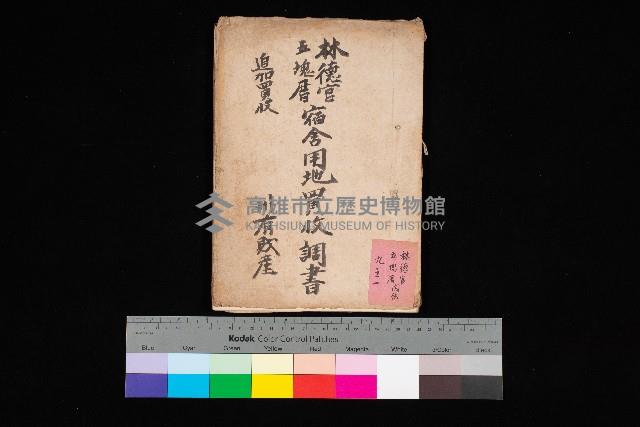 林德官
五塊厝
宿舍用地買收調書
追加買收
有財産
高雄市立歷史博物館
KAOHSIUNG MUSEUM OF HISTORY
林德官
五塊厝
九五一
Kodak Color Control Patches
Blue Cyan Green Yellow Red Magenta White 3/Color Black